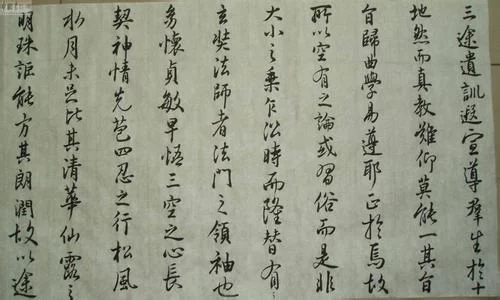 三途遺訓遐宣導羣生於十
地然而真教難仰莫能一其旨
旨歸曲學易遵耶正於焉故
所以空有之論或習俗而是非
大小之乘乍沿時而隆替有
玄奘法師者法門之領袖也
懷貞敏早悟三空之心長
契神情先苞四忍之行松風
水月未足比其清華仙露之
明珠詎能方其朗潤故以途